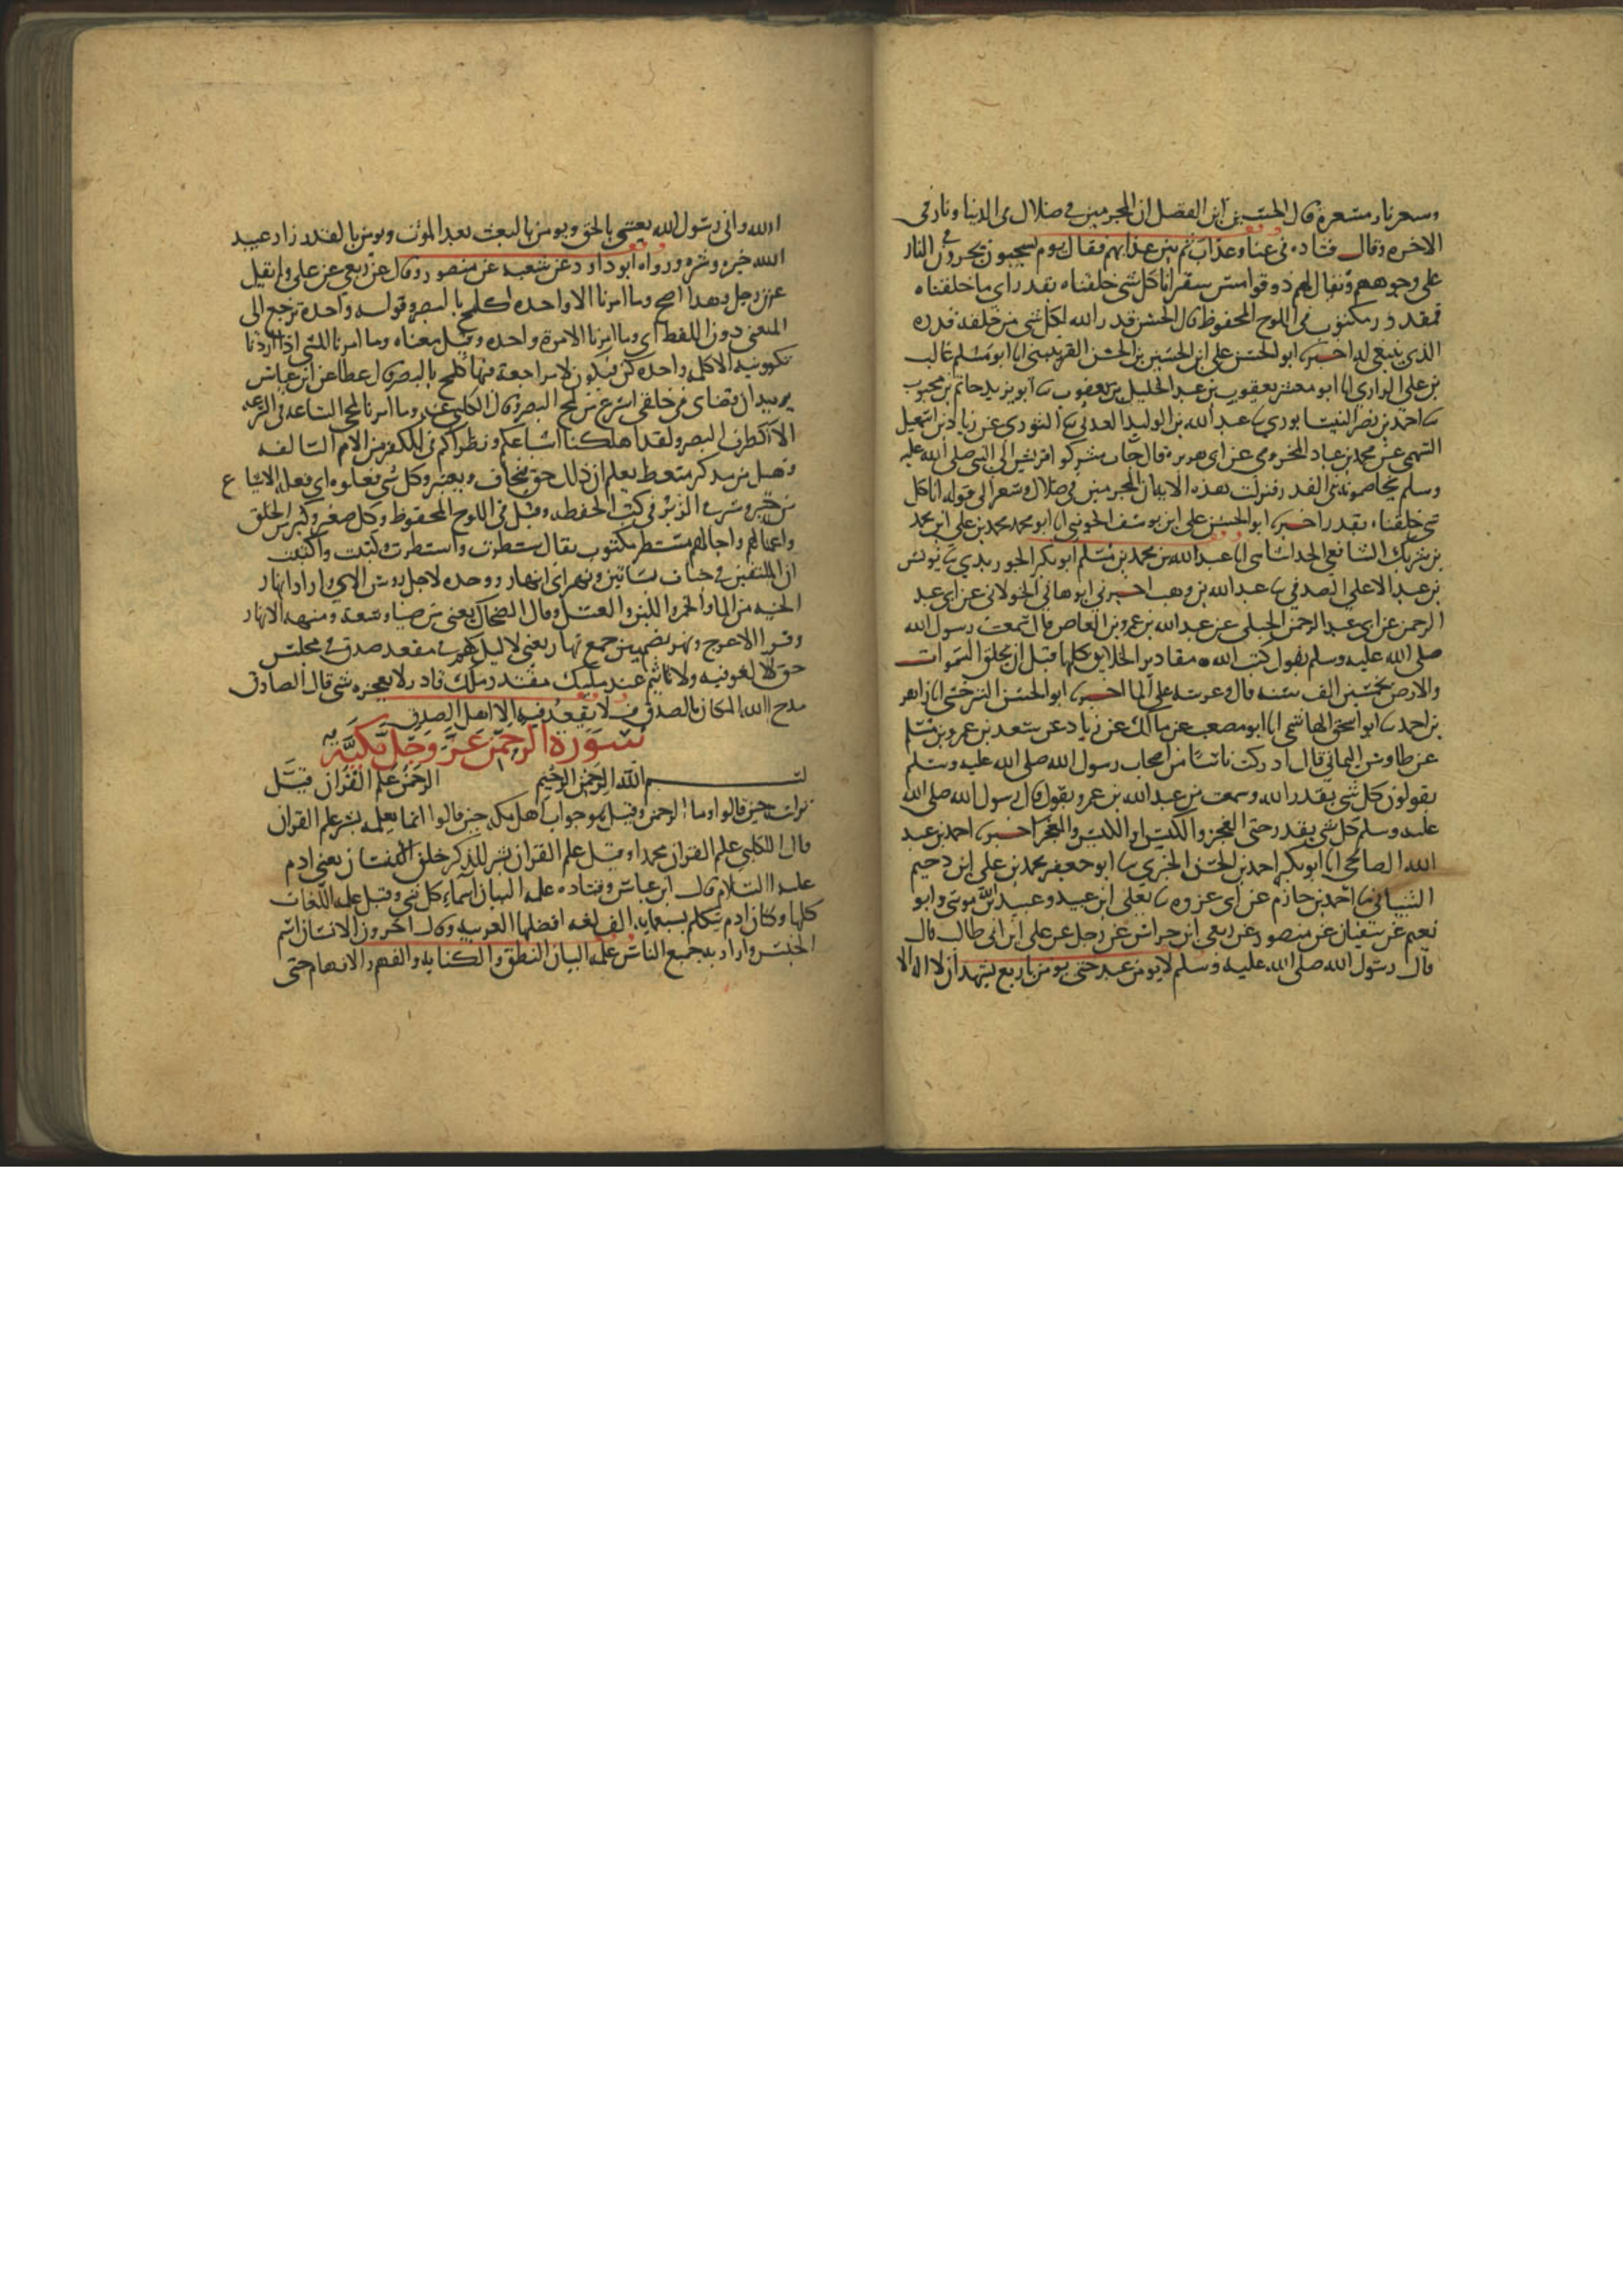 وسعر نار مسعرة قال الحسين ابن الفضل ان المجرمين في ضلال في الدنيا ونار في
الاخره وقال قتاده في عنا وعذاب ثم بين عذابهم فقال يوم يسحبون يجرون في النار
على وجوههم ويقال لهم ذوقوا مس سقر انا كل شي خلقناه بقدر اي ما خلقناه
فمقدور مكتوب في اللوح المحفوظ قال الحسن قدر الله لكل شي من خلقه قدره
الذي ينبغي له اخبرنا ابو الحسن علي ابن الحسين بن الحسن القرينيني انا ابو مسلم غالب
بن علي الرازي انا ابو معشر يعقوب بن عبد الجليل بن يعقوب ثا ابو يزيد حاتم بن محبوب
ثا احمد بن نصر النيسابوري ثا عبد الله بن الوليد العدني ثنا الثوري عن زياد بن اسمعيل
السهمي عن محمد بن عباد المخزومي عن ابي هريرة قال جات مشركوا قريش الى النبي صلى الله عليه
وسلم يخاصمونه في القدر فنزلت هذه الايه ان المجرمين في ضلال وسعر الى قوله انا كل
شي خلقناه بقدر اخبرنا ابو الحسن علي ابن يوسف الجويني انا ابو محمد محمد بن علي ابن محمد
بن شريك الشافعي الخداشاهي انا عبد الله بن محمد بن مسلم ابو بكر الجوربدي ثا يونس
بن عبد الاعلى الصدفي ثا عبد الله بن وهب اخبرني ابو هاني الخولاني عن ابي عبد
الرحمن عن ابي عبد الرحمن الحبلي عن عبد الله بن عمرو بن العاص قال سمعت رسول الله
صلى الله عليه وسلم يقول كتب الله مقادير الخلايق كلها قبل ان يخلق السموات
والارض بخمسين الف سنه قال وعرشه على الما اخبرنا ابو الحسن السرخسي انا زاهر
بن احمد ثا ابو اسحق الهاشمي انا ابو مصعب عن مالك عن زياد عن سعد بن عمرو بن مسلم
عن طاوس اليماني قال ادركت ناسا من اصحاب رسول الله صلى الله عليه وسلم
يقولون كل شي بقدر الله وسمعت من عبد الله بن عمرو يقول قال رسول الله صلى الله
عليه وسلم كل شي بقدر حتى العجز والكيس او الكيس والعجز اخبرنا احمد بن عبد
الله الصالحي انا ابو بكر احمد بن الحسن الحيري ثا ابو جعفر محمد بن علي ابن دحيم
الشيباني ثا احمد بن حازم عن ابي عزره ثا يعلى ابن عبيد وعبيد الله بن موسى وابو
نعيم عن سفيان عن منصور عن ربعي ابن حراش عن رجل عن علي ابن ابي طالب قال
قال رسول الله صلى الله عليه وسلم لا يومن عبد حتى يومن باربع يشهد ان لا اله الا
الله واني رسول الله بعثني بالحق ويومن بالبعث بعد الموت ويومن بالقدر زاد عبيد
الله خيره وشره ورواه ابو داود عن شعبه عن منصور وقال عن ربعي عن علي ولم يقل
عن رجل وهذا اصح وما امرنا الا واحده كلمح بالبصر وقوله واحدة ترجع الى
المعنى دون اللفظ اي وما امرنا الا مرة واحده وقيل معناه وما امرنا للشي اذا اردنا
تكوينه الا كلمه واحدة كن فيكون لا مراجعة فيها كلمح بالبصر قال عطا عن ابن عباس
يريد ان قضاي في خلقي اسرع من لمح البصر وقال الكلبي عنه وما امرنا لمجي الساعه في السرعه
الا كطرف البصر ولقد اهلكنا اشياعكم ونظراكم في الكفر من الامم السالفه
فهل من مدكر متعظ يعلم ان ذلك حق فيخاف ويعتبر وكل شي فعلوه اي فعله الاشياع
من خير وشر في الزبر في كتب الحفظه وقيل في اللوح المحفوظ وكل صغير وكبير من الخلق
واعمالهم واجالهم مستطر مكتوب يقال سطرت واستطرت وكتبت واكتتبت
ان المتقين في جنات بساتين ونهر اي انهار ووحده لاجل روس الاي واراد انهار
الجنه من الما والخمر واللبن والعسل وقال الضحاك يعني من ضيا وسعة ومنه الانهار
وقرا الاعرج ونهر بضمتين جمع نهار يعني لا ليل لهم في مقعد صدق في مجلس
حق لا لغو فيه ولا تاثيم عند مليك مقتدر ملك قادر لا يعجزه شي قال الصادق
مدح الله المكان بالصدق فلا يقعد فيه الا اهل الصدق
سورة الرحمن عز وجل مكية
بسم الله الرحمن الرحيم الرحمن علم القران قيل
نزلت حين قالوا وما الرحمن وقيل هو جواب اهل مكه حين قالوا انما يعلمه بشر علم القران
قال الكلبي علم القران محمدا وقيل علم القران يسر للذكر خلق الانسان يعني ادم
عليه السلام قال ابن عباس وقتاده علمه البيان اسماء كل شي وقيل علمه اللغات
كلها وكان ادم يتكلم بسبعمايه الف لغه افضلها العربيه وقال اخرون الانسان اسم
الجنس واراد به جميع الناس علمه البيان النطق والكتابه والفهم والافهام حتى